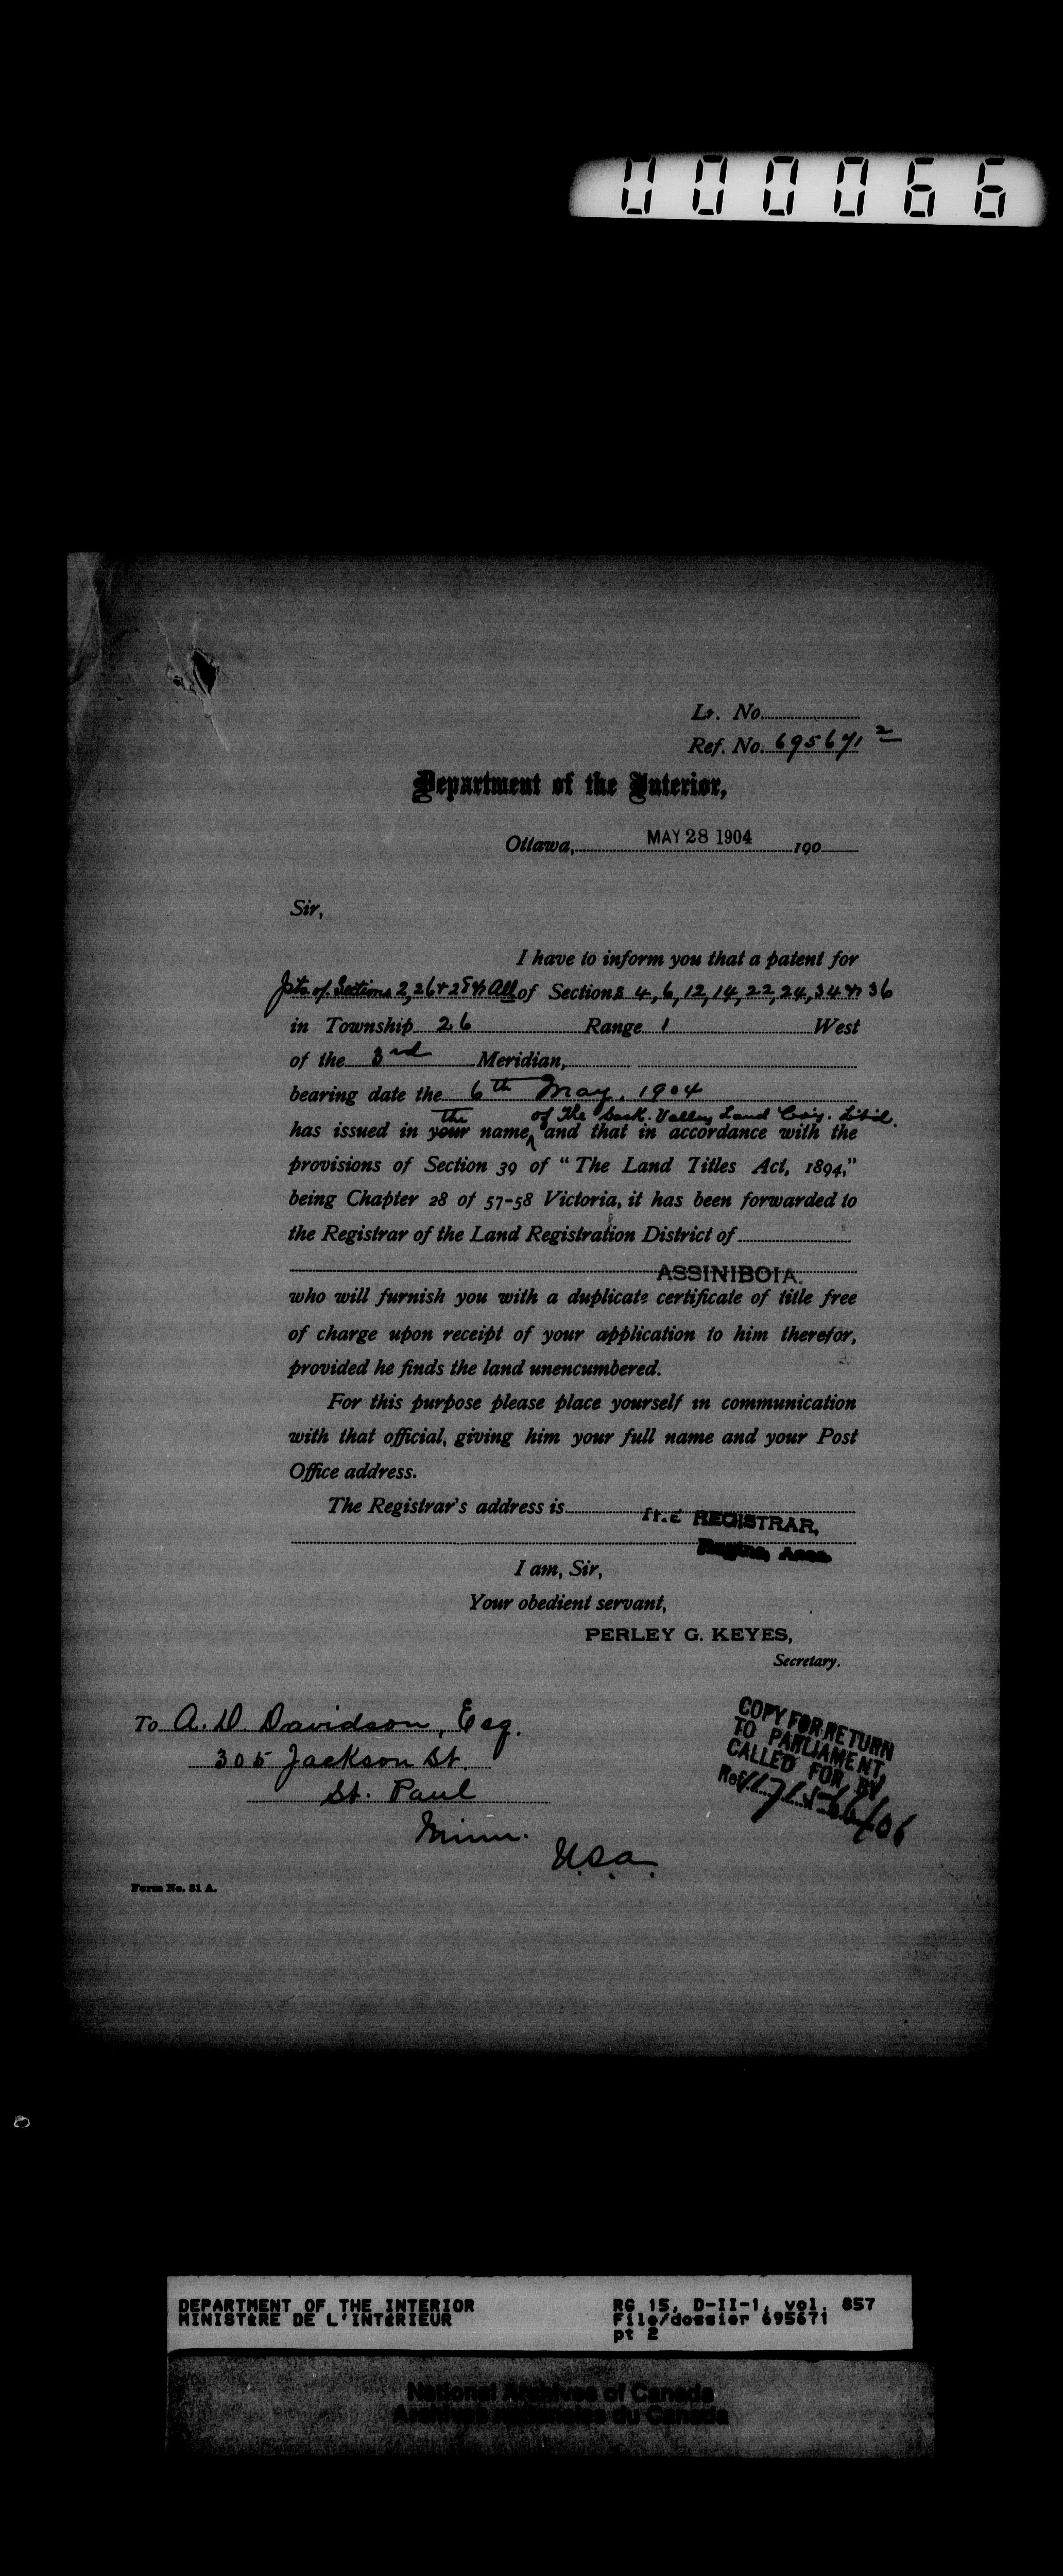 000066
Lr. No.
Ref. No. 695671 2
Department of the Interior,
Ottawa, MAY 28 1904 190
Sir,
I have to inform you that a patent for
Pts. of Sections 2, 26 & 28 & All of Sections 4, 6, 12, 14, 22, 24, 34 & 36
in Township 26 Range 1 West
of the 3rd Meridian,
bearing date the 6th May, 1904
the of the Sask. Valley Land Coy. Lt'd.
has issued in your name, and that in accordance with the
provisions of Section 39 of "The Land Titles Act, 1894,"
being Chapter 28 of 57-58 Victoria, it has been forwarded to
the Registrar of the Land Registration District of
ASSINIBOIA.
who will furnish you with a duplicate certificate of title free
of charge upon receipt of your application to him therefor,
provided he finds the land unencumbered.
For this purpose please place yourself in communication
with that official, giving him your full name and your Post
Office address.
The Registrar's address is THE REGISTRAR,
Regina, Assa.
I am, Sir,
Your obedient servant,
PERLEY G. KEYES,
Secretary.
To A. D. Davidson, Esq.
305 Jackson St.
St. Paul
Minn.
U.S.a.
COPY FOR RETURN
TO PARLIAMENT,
CALLED FOR, BY
Ref.
Form No. 81 A.
DEPARTMENT OF THE INTERIOR
MINISTÈRE DE L'INTÉRIEUR
RG 15, D-II-1, vol. 857
File/dossier 695671
pt 2
National Archives of Canada
Archives nationales du Canada